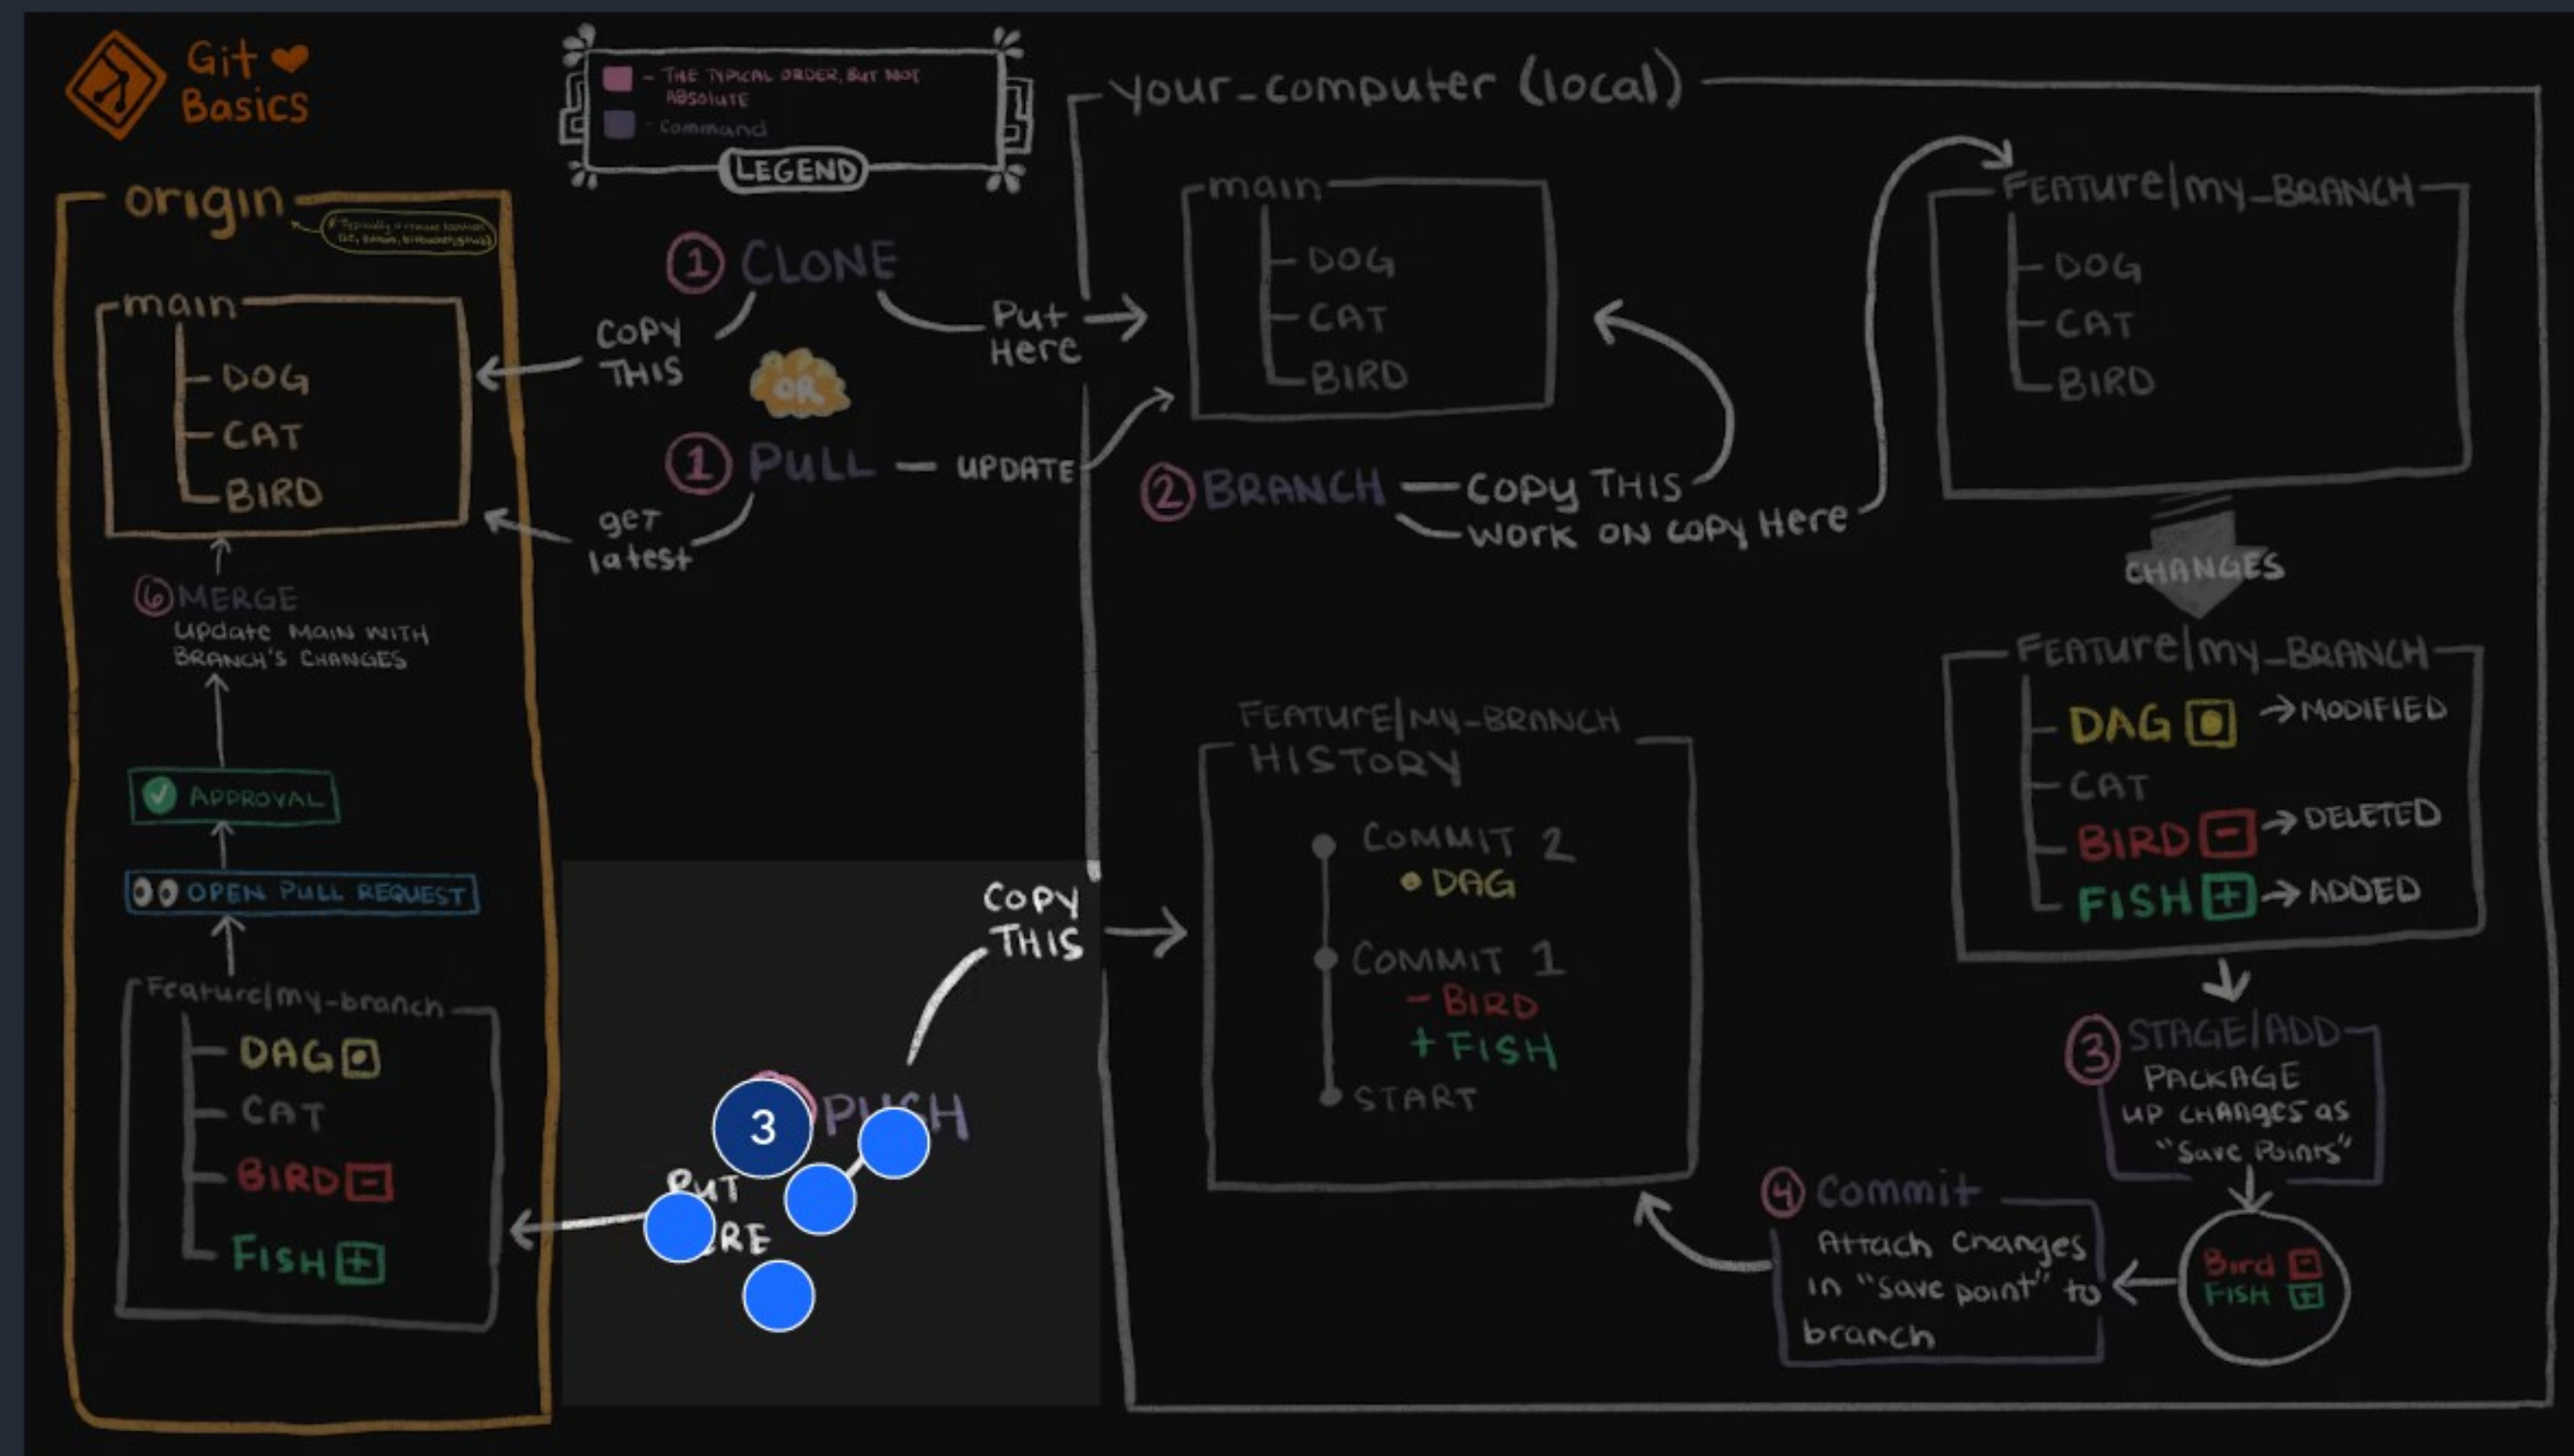 Git
Basics
- THE TYPICAL ORDER, BUT NOT
ABSOLUTE
- Command
LEGEND
origin
* Typically a remote location
main
DOG
CAT
BIRD
6 MERGE
update MAIN WITH
BRANCH'S CHANGES
APPROVAL
OPEN PULL REQUEST
Feature/my-branch
DAG
CAT
BIRD -
FISH +
1 CLONE
COPY
THIS
Put
Here
OR
1 PULL — UPDATE
get
latest
your_computer (local)
main
DOG
CAT
BIRD
2 BRANCH — COPY THIS
WORK ON COPY Here
FEATURE/my_BRANCH
DOG
CAT
BIRD
CHANGES
FEATURE/my_BRANCH
DAG → MODIFIED
CAT
BIRD - → DELETED
FISH + → ADDED
3 STAGE/ADD
PACKAGE
UP CHANGES as
"Save Points"
Bird -
FISH +
4 Commit
Attach Changes
in "save point" to
branch
FEATURE/MY-BRANCH
HISTORY
COMMIT 2
• DAG
COMMIT 1
- BIRD
+ FISH
START
COPY
THIS
3
PUSH
PUT